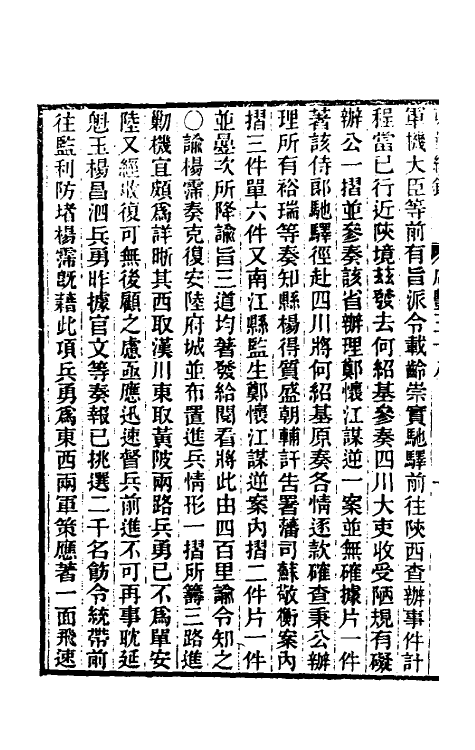 軍機大臣等前有旨派令載齡崇實馳驛前往陝西查辦事件計
程當已行近陝境茲發去何紹基參奏四川大吏收受陋規有礙
辦公一摺並參奏該省辦理鄭懷江謀逆一案並無確據片一件
著該侍郎馳驛徑赴四川將何紹基原奏各情逐款確查秉公辦
理所有裕瑞等奏知縣楊得質盛朝輔訐告署藩司蘇敬衡案內
摺三件單六件又南江縣監生鄭懷江謀逆案內摺二件片一件
並疊次所降諭旨三道均著發給閱看將此由四百里諭令知之
○諭楊霈奏克復安陸府城並布置進兵情形一摺所籌三路進
勦機宜頗為詳晰其西取漢川東取黃陂兩路兵勇已不為單安
陸又經收復可無後顧之慮亟應迅速督兵前進不可再事耽延
魁玉楊昌泗兵勇昨據官文等奏報已挑選二千名飭令統帶前
往監利防堵楊霈既藉此項兵勇為東西兩軍策應著一面飛速